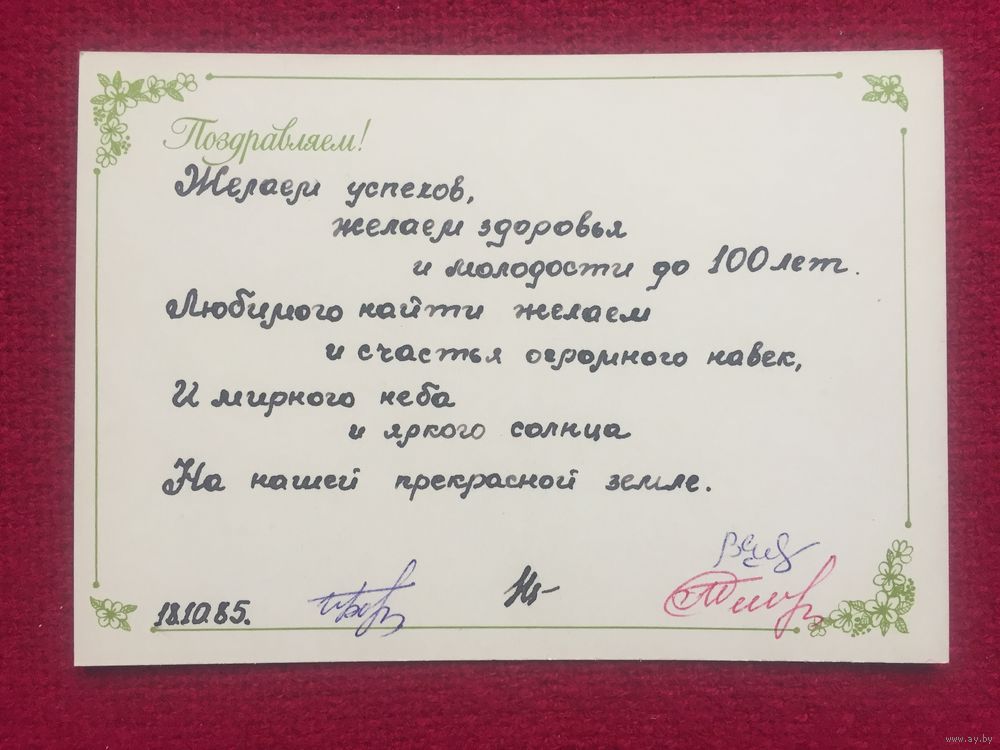 Поздравляем!
Желаем успехов,
желаем здоровья
и молодости до 100 лет.
Любимого найти желаем
и счастья огромного навек,
И мирного неба
и яркого солнца
На нашей прекрасной земле.
18.10.85.
www.ay.by